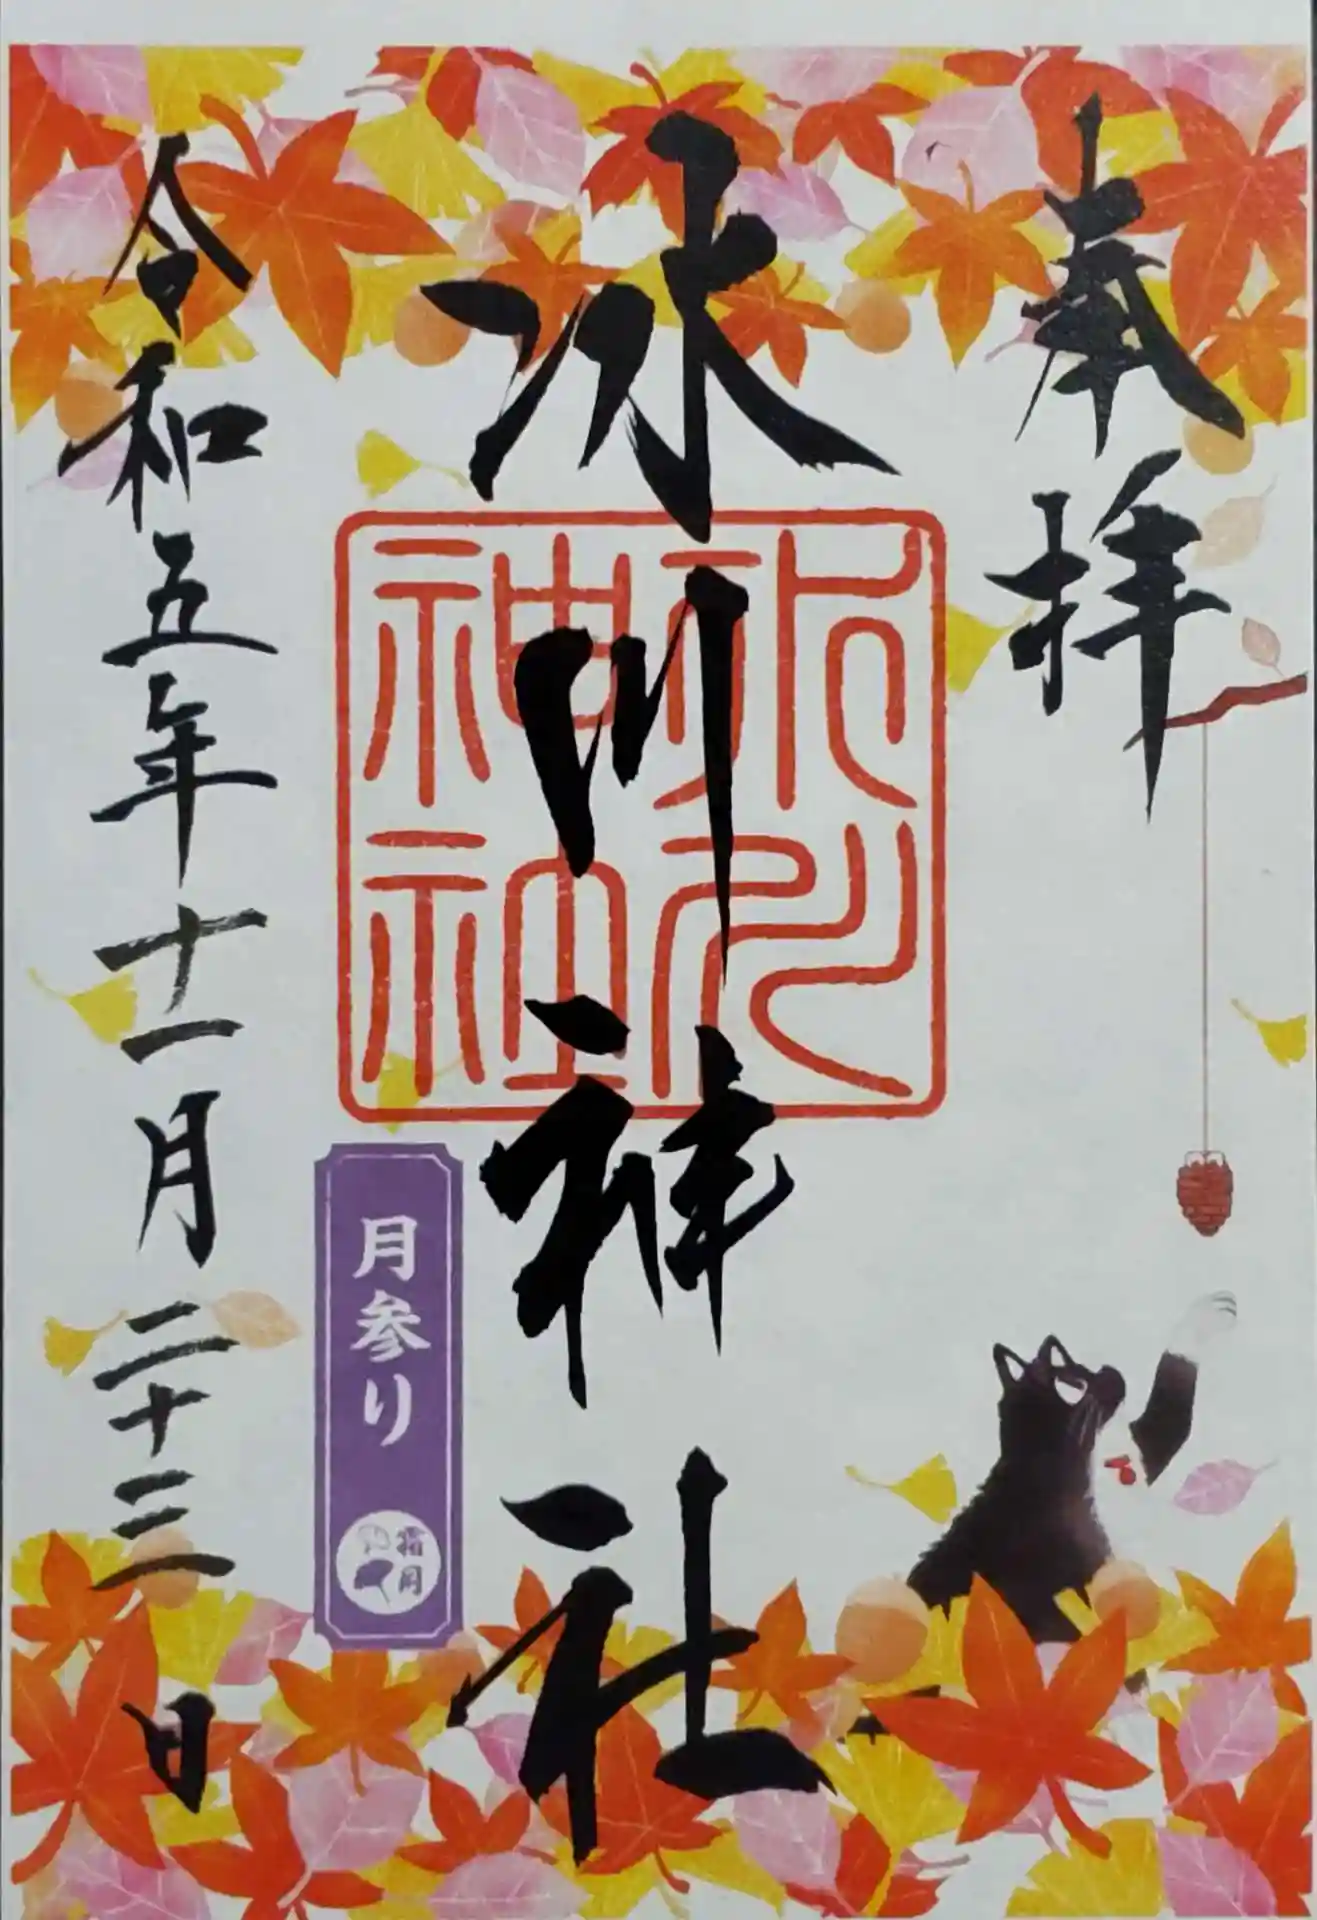 奉拝
氷川神社
氷川神社
月参り
霜月
令和五年十一月二十三日